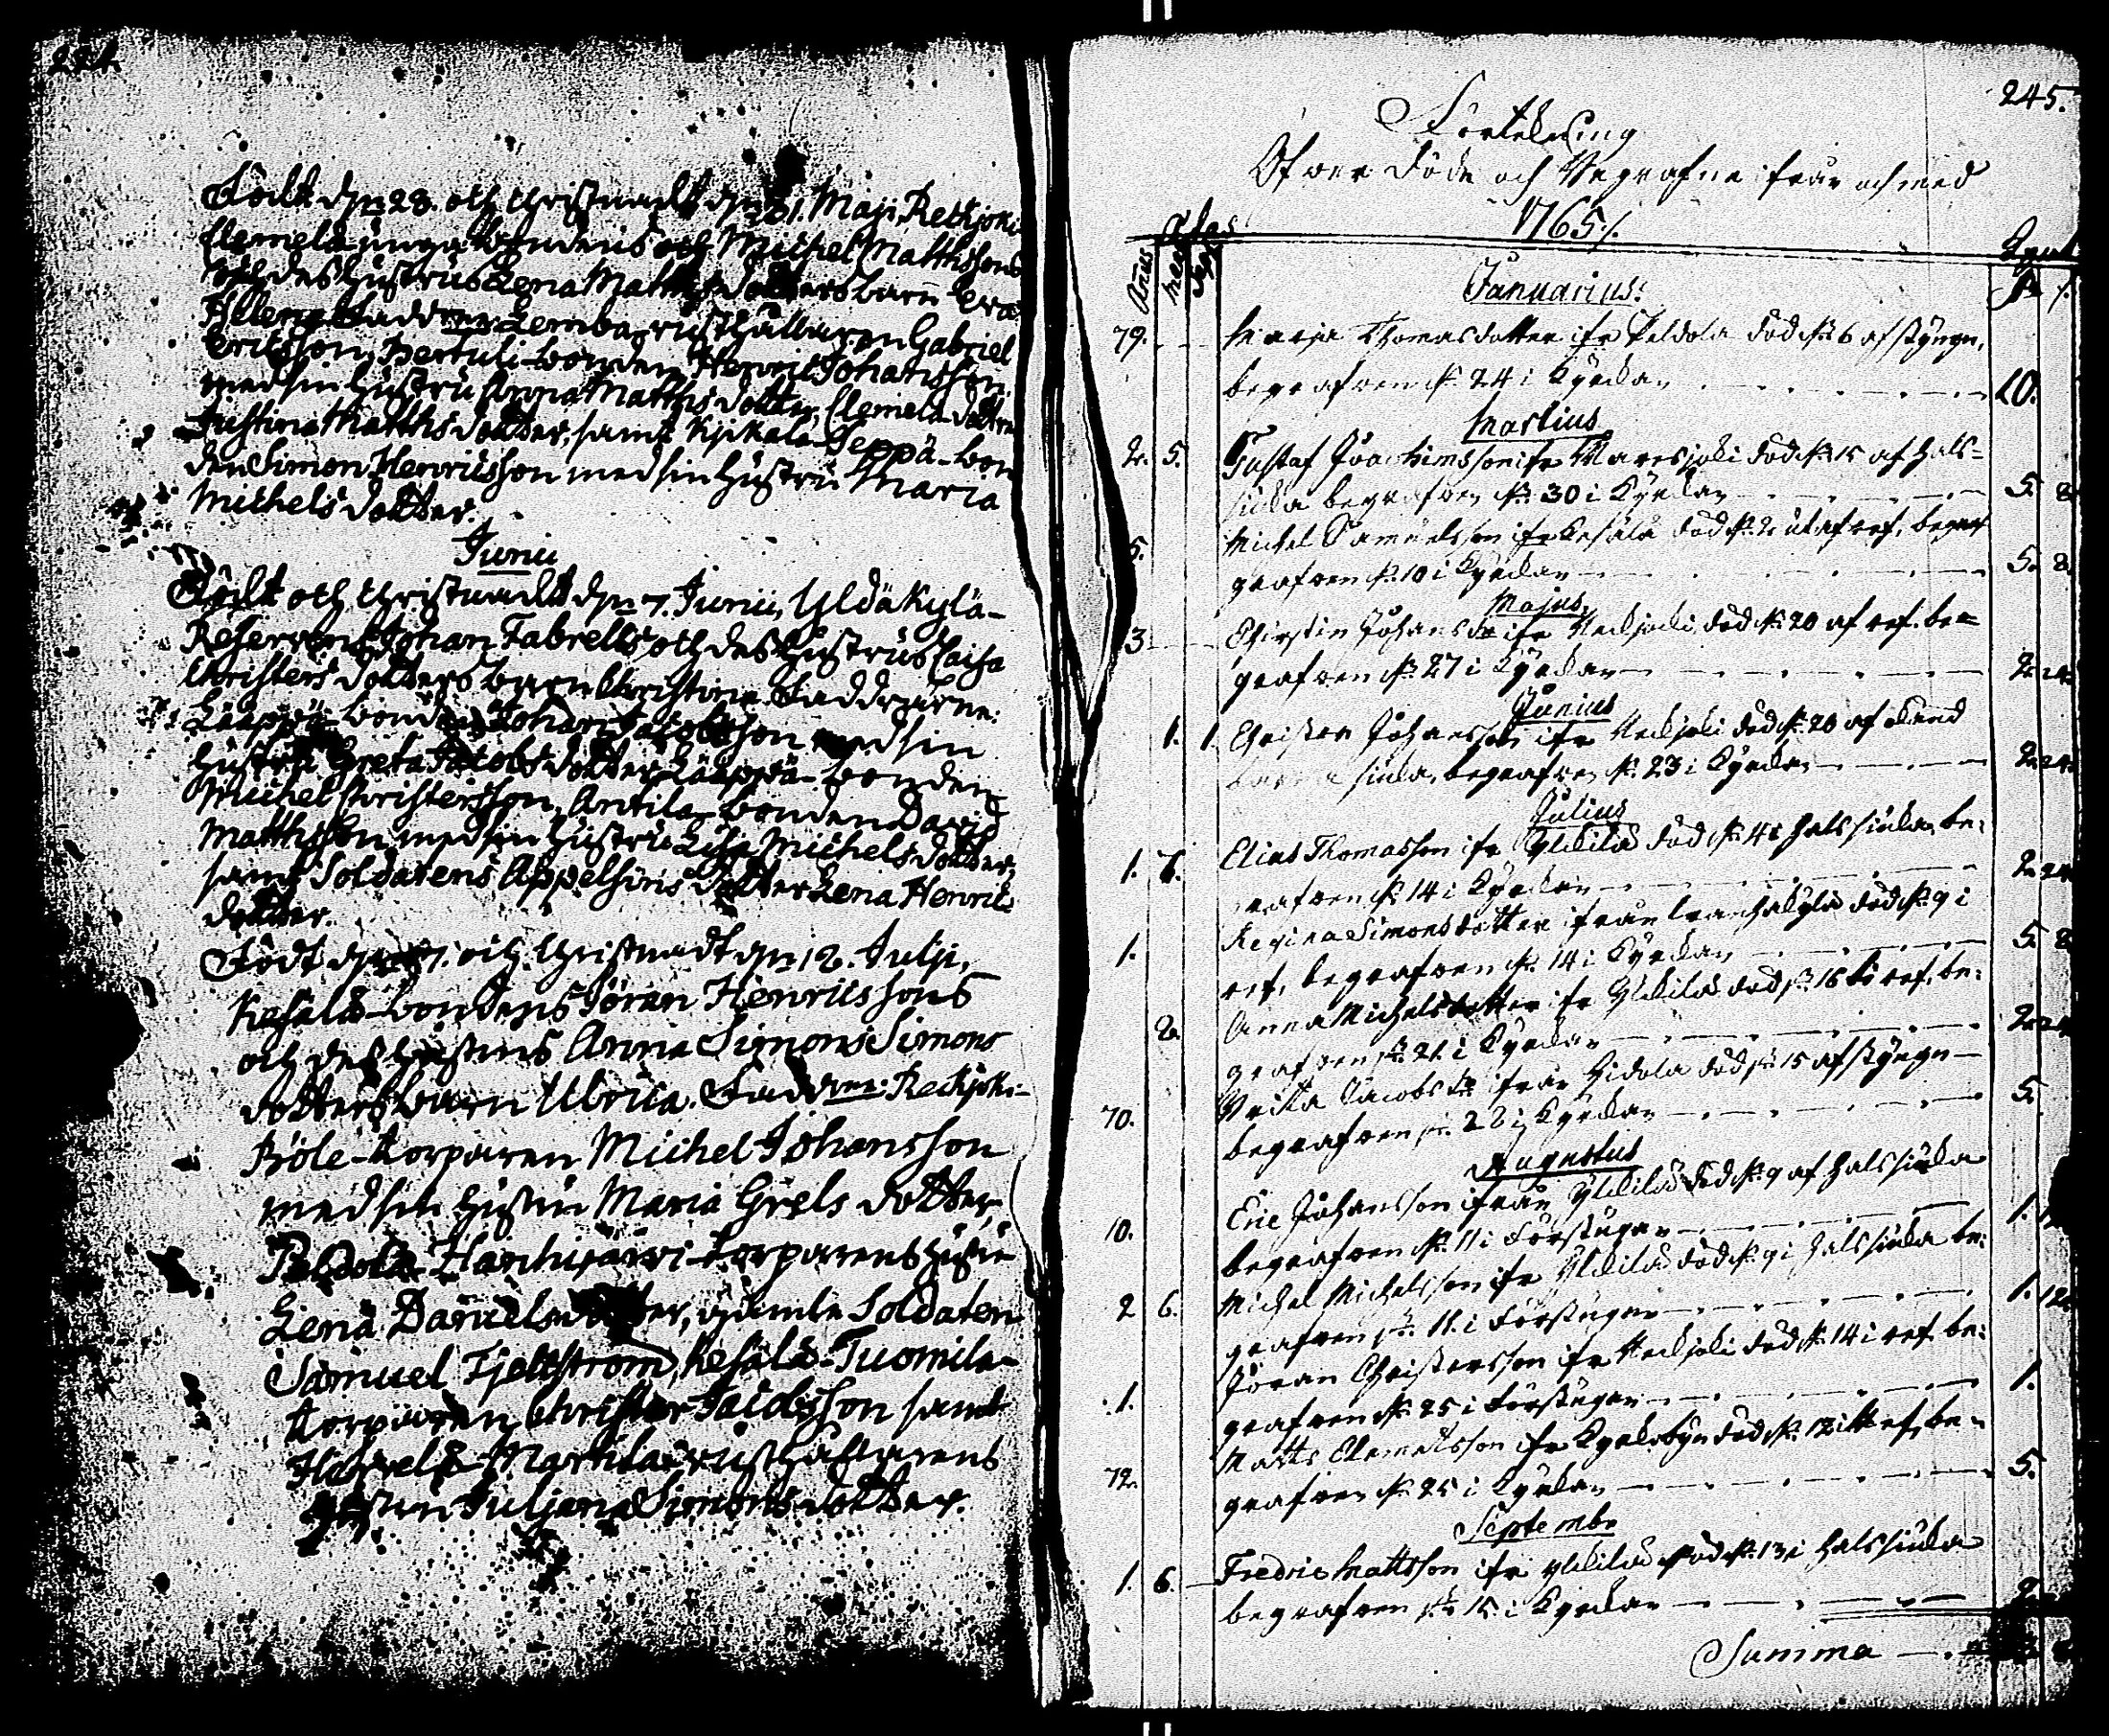 224.
Födt dn 28. och Christnadt dn 31. Maji, Reckjoki
Clemelä unga bondens och Michel Matthssons
och des hustrus Lena Matths dotters barn Eva
Helena. Faddrar: Lemba rusthållaren Gabriel
Ericsson, Bertuli-bonden Henric Johansson
med sin hustru Anna Matths dotter, Clemelä-dottren
Justina Matths dotter, samt Kjikala-Seppä-bon
den Simon Henricsson med sin hustru Maria
Michels dotter.
Junii
Födt och Christnadt dn 7. Junii, Yldäkylä-
Reserven Johan Fabrells och des hustrus Caisa
Christers dotters barn Christina. Faddrarne:
Lääppä-bonden Johan Jacobsson med sin
hustru Greta Jacobs dotter, Lääppä-bonden
Michel Christersson, Antila-bonden David
Matthsson med sin hustru Lisa Michels dotter,
samt Soldatens Appelsins dotter Lena Henrics
dotter.
Födt dn 7. och Christnadt dn 12. Julji,
Kesälä-bondens Jöran Henricssons
och des hustrus Anna Simons Simons
dotters barn Ulrica. Faddrar: Reckjoki-
Böle-torparen Michel Johansson
med sin hustru Maria Grels dotter,
Peldola Harhijärvi-torparens hustru
Lena Daniels dotter, gamle Soldaten
Samuel Fjeltström, Kesälä-Tuomila-
torparen Christer Jacobsson samt
Marttila rusthållarens
hustru Juljana Simons dotter.
245.
Förtekning
Öfwer Döde och Begrafne ifrån och med
1765.
Ætas
Añus
Januarius.
79. Maria Thomasdotter ifr Peldola död d. 6 af styng,
begrafven d. 24 i Kyrkan 10.
Martius
2. 5. Gustaf Joachimsson ifr Maresjoki död d. 15 af hals-
siuka begrafven d. 30 i Kyrkan 5. 8
5. Michel Samuelsson ifr Kesälä död d. 2 utaf ref, be
grafven d. 10 i Kyrkan 5. 8.
Majus
3 Christin Johansdr ifr Reckjoki, död d. 20 af ref. be-
grafven d. 27 i Kyrkan 2. 24
Junius
1. 1 Christer Johansson ifr Reckjoki död d. 20 af okänd
siuka, begrafven d. 23 i Kyrkan 2. 24
Julius
1. 7. Elias Thomasson ifr Yldilä död d. 4 halssiuka, be-
grafven d. 14 i Kyrkan 2. 24
1. Regina Simonsdotter ifrån död d. 9 i
ref, begrafven d. 14 i Kyrkan 5. 8
2. Anna Michelsdotter ifr Yldilä död d. 16 i ref, be-
grafven d. 21 i Kyrkan 2. 24
70. Brita Jacobsdr ifrån Hidola död d. 15 af styng
begrafven d. 28 i Kyrkan 5.
Augustus
10. Eric Johansson ifrån Yldilä död d. 9 af halssiuka
begrafven d. 11 i Förstugan 1.
2 6. Michel Michelsson ifr Yldilä död d. 9 i halssiuka be-
grafven d. 11. i Förstugan 1. 12
1. Jöran Christersson ifr Reckjoki död d. 14 i ref. be-
grafven d. 25 i Förstugan 1.
72. Matts Clemetsson ifr Kyrkobyn död d. 12 i ref, be-
grafven d. 25 i Kyrkan 5.
Septembr
1. 6. Fredric Mattsson ifr Yldilä död d. 13 i halssiuka
begrafven d. 15. i Kyrkan 2
Summa